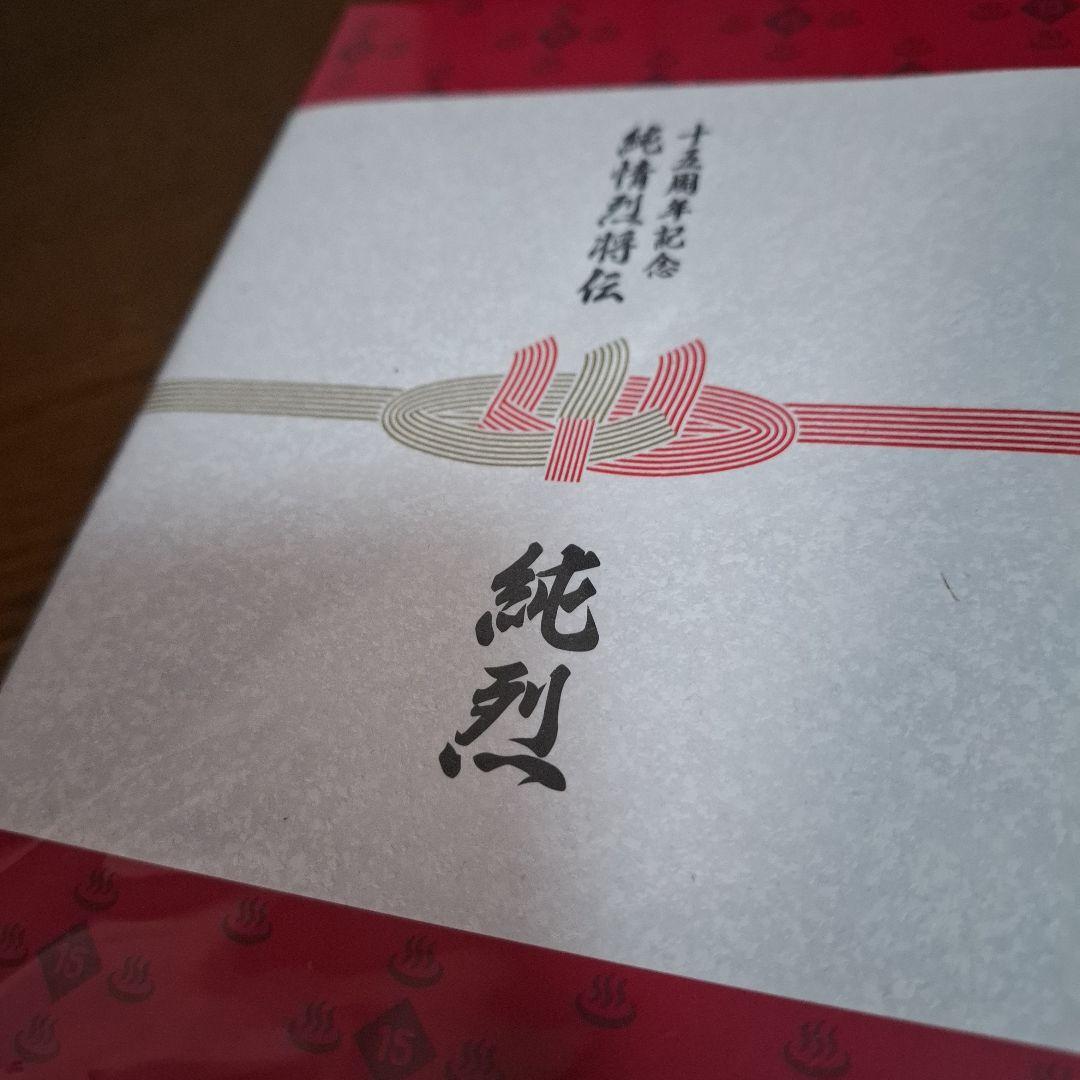 十五周年記念
純情烈将伝
純烈
15
15